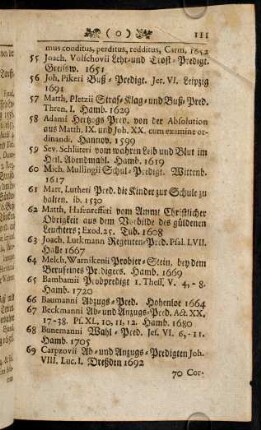 ( o ) 111
mus conditus, perditus, redditus, Carm. 1652
55 Joach. Volschovii Lehr- und Trost-Predigt. Greifsw. 1651
56 Joh. Pikeri Buß-Predigt. Jer. VI. Leipzig
1691
57 Matth. Pletzii Straf- Klag- und Buß-Pred.
Thren. I. Hamb. 1629
58 Adami Hertzogs Pred. von der Absolution
aus Matth. IX. und Joh. XX. cum examine or-
dinandi. Hannov. 1599
59 Sev. Schlüteri vom wahren Leib und Blut im
Heil. Abendmahl. Hamb. 1619
60 Mich. Mullingii Schul-Predigt. Wittenb.
1617
61 Mart. Lutheri Pred. die Kinder zur Schule zu
halten. ib. 1530
62 Matth. Hafenrefferi vom Ammt Christlicher
Obrigkeit aus dem Vorbilde des güldenen
Leuchters; Exod. 25. Tub. 1608
63 Joach. Luckmann Regenten-Pred. Psal. LVII.
Halle 1667
64 Melch. Warnikenii Probier-Stein, bey dem
Beruf eines Predigers. Hamb. 1669
65 Bambamii Probpredigt 1. Thess. V. 4.-8.
Hamb. 1720
66 Baumanni Abzugs-Pred. Hohenloe 1664
67 Beckmanni Ab- und Anzugs-Pred. Act. XX.
17-38. Ps. XL, 10, 11, 12. Hamb. 1680
68 Bunemanni Wahl-Pred. Jes. VI. 6,-11.
Hamb. 1705
69 Carpzovii Ab- und Anzugs-Predigten Joh.
VIII. Luc. I. Dreßden 1692
70 Cor-